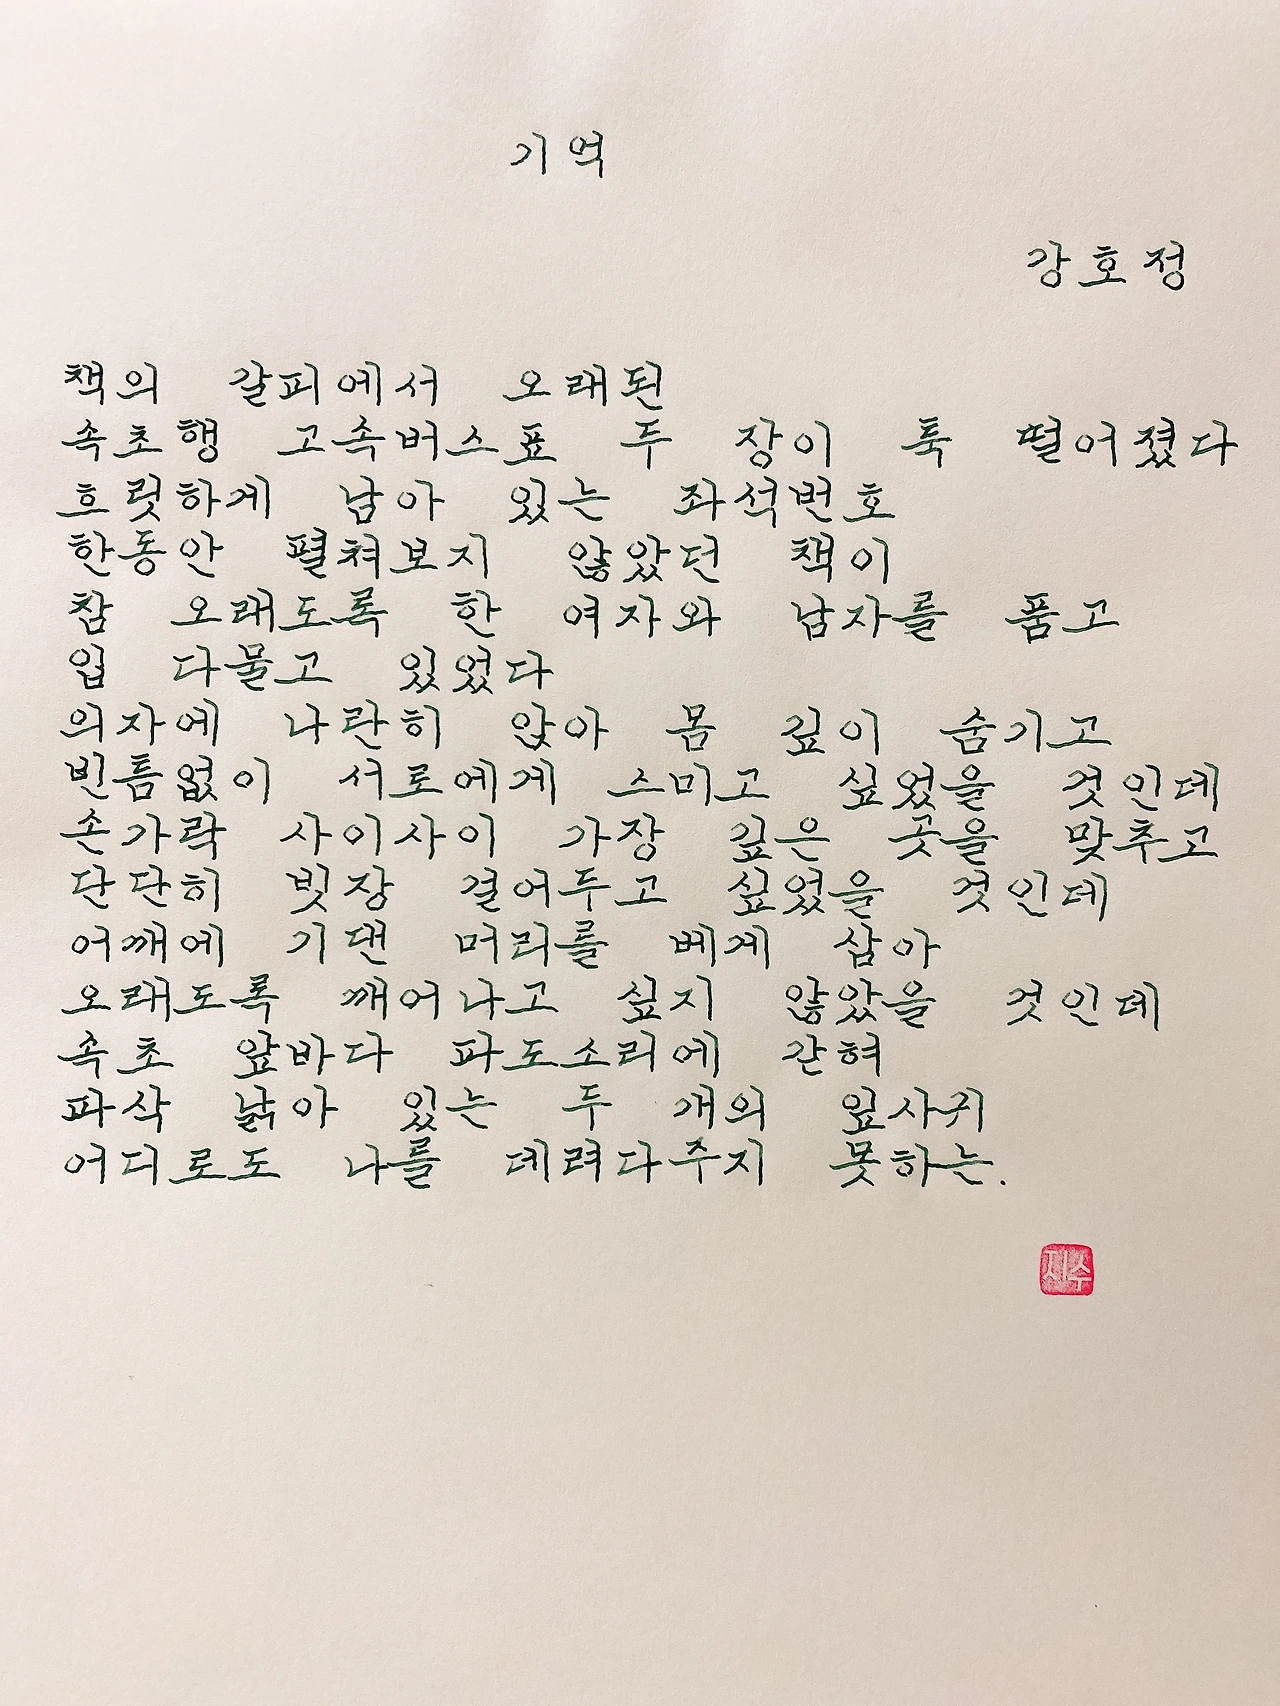 기억
강호정
책의 갈피에서 오래된
속초행 고속버스표 두 장이 툭 떨어졌다
흐릿하게 남아 있는 좌석번호
한동안 펼쳐보지 않았던 책이
참 오래도록 한 여자와 남자를 품고
입 다물고 있었다
의자에 나란히 앉아 몸 깊이 숨기고
빈틈없이 서로에게 스미고 싶었을 것인데
손가락 사이사이 가장 깊은 곳을 맞추고
단단히 빗장 걸어두고 싶었을 것인데
어깨에 기댄 머리를 베게 삼아
오래도록 깨어나고 싶지 않았을 것인데
속초 앞바다 파도소리에 갇혀
파삭 낡아 있는 두 개의 잎사귀
어디로도 나를 데려다주지 못하는.
지수